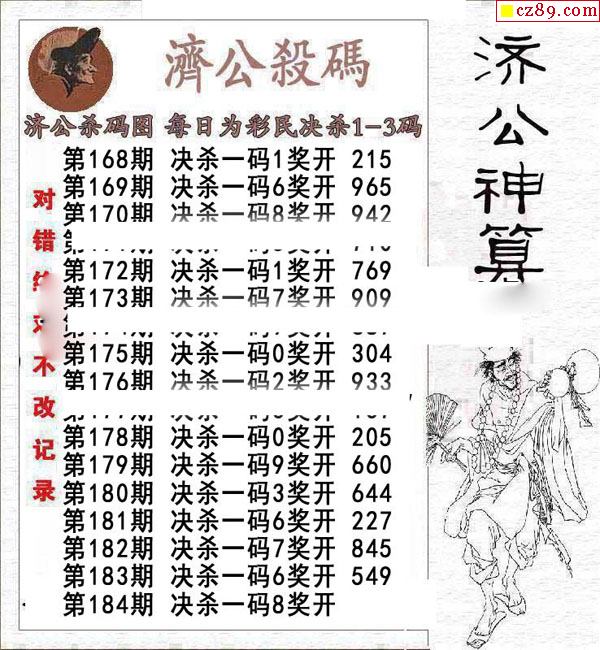 cz89.com
濟公殺碼
济公神算
济公杀码图 每日为彩民决杀1-3码
第168期 决杀一码1奖开 215
第169期 决杀一码6奖开 965
第170期 决杀一码8奖开 942
第172期 决杀一码1奖开 769
第173期 决杀一码7奖开 909
第175期 决杀一码0奖开 304
第176期 决杀一码2奖开 933
第178期 决杀一码0奖开 205
第179期 决杀一码9奖开 660
第180期 决杀一码3奖开 644
第181期 决杀一码6奖开 227
第182期 决杀一码7奖开 845
第183期 决杀一码6奖开 549
第184期 决杀一码8奖开
对错
不改记录